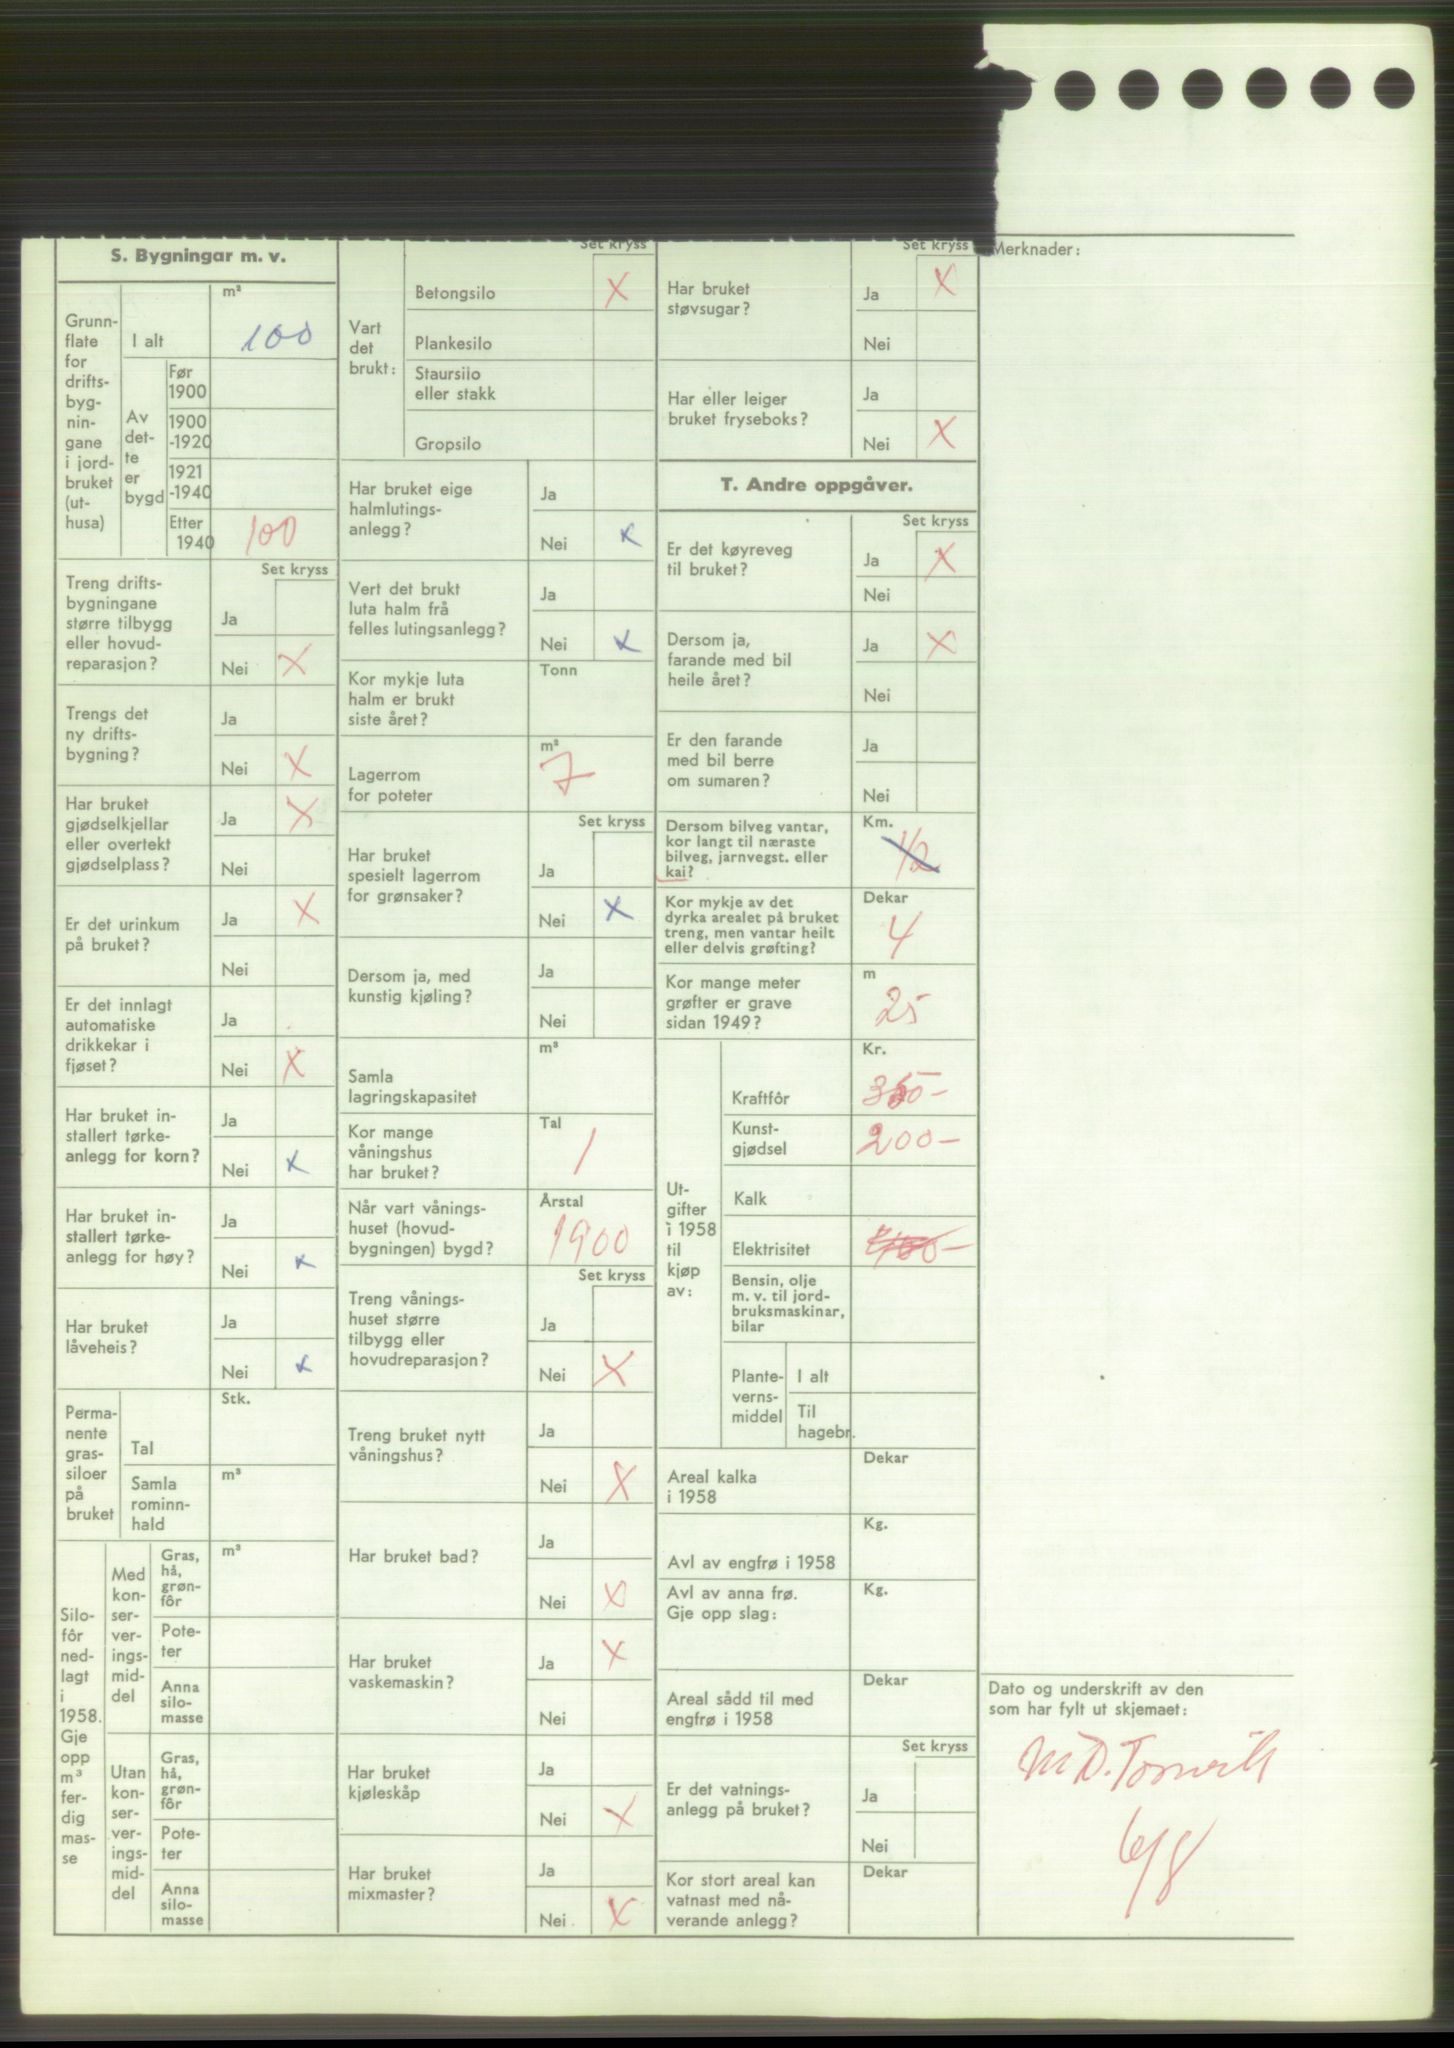 S. Bygningar m. v.
Grunn-
flate
for
drifts-
byg-
nin-
gane
i jord-
bruket
(ut-
husa)
I alt
m²
100
Av
det-
te
er
bygd
Før
1900
1900
-1920
1921
-1940
Etter
1940
100
Set kryss
Treng drifts-
bygningane
større tilbygg
eller hovud-
reparasjon?
Ja
Nei X
Trengs det
ny drifts-
bygning?
Ja
Nei X
Har bruket
gjødselkjellar
eller overtekt
gjødselplass?
Ja X
Nei
Er det urinkum
på bruket?
Ja X
Nei
Er det innlagt
automatiske
drikkekar i
fjøset?
Ja
Nei X
Har bruket in-
stallert tørke-
anlegg for korn?
Ja
Nei x
Har bruket in-
stallert tørke-
anlegg for høy?
Ja
Nei x
Har bruket
låveheis?
Ja
Nei x
Perma-
nente
gras-
siloer
på
bruket
Tal
Stk.
Samla
rominn-
hald
m³
Silo-
fôr
ned-
lagt
i
1958.
Gje
opp
m³
fer-
dig
mas-
se
Med
kon-
ser-
ver-
ings-
mid-
del
Gras,
hå,
grøn-
fôr
m³
Pote-
ter
Anna
silo-
masse
Utan
kon-
ser-
ver-
ings-
mid-
del
Gras,
hå,
grøn-
fôr
Pote-
ter
Anna
silo-
masse
Set kryss
Vart
det
brukt:
Betongsilo X
Plankesilo
Staursilo
eller stakk
Gropsilo
Har bruket eige
halmlutings-
anlegg?
Ja
Nei x
Vert det brukt
luta halm frå
felles lutingsanlegg?
Ja
Nei x
Kor mykje luta
halm er brukt
siste året?
Tonn
Lagerrom
for poteter
m³
7
Set kryss
Har bruket
spesielt lagerrom
for grønsaker?
Ja
Nei x
Dersom ja, med
kunstig kjøling?
Ja
Nei
Samla
lagringskapasitet
m³
Kor mange
våningshus
har bruket?
Tal
1
Når vart vånings-
huset (hovud-
bygningen) bygd?
Årstal
1900
Set kryss
Treng vånings-
huset større
tilbygg eller
hovudreparasjon?
Ja
Nei X
Treng bruket nytt
våningshus?
Ja
Nei X
Har bruket bad?
Ja
Nei X
Har bruket
vaskemaskin?
Ja X
Nei
Har bruket
kjøleskåp
Ja
Nei X
Har bruket
mixmaster?
Ja
Nei. X
Set kryss
Har bruket
støvsugar?
Ja X
Nei
Har eller leiger
bruket fryseboks?
Ja
Nei X
T. Andre oppgåver.
Set kryss
Er det køyreveg
til bruket?
Ja X
Nei
Dersom ja,
farande med bil
heile året?
Ja X
Nei
Er den farande
med bil berre
om sumaren?
Ja
Nei
Dersom bilveg vantar,
kor langt til næraste
bilveg, jarnvegst. eller
kai?
Km.
1/2
Kor mykje av det
dyrka arealet på bruket
treng, men vantar heilt
eller delvis grøfting?
Dekar
4
Kor mange meter
grøfter er grave
sidan 1949?
m
25
Ut-
gifter
i 1958
til
kjøp
av:
Kr.
Kraftfôr 350-
Kunst-
gjødsel 200-
Kalk
Elektrisitet
Bensin, olje
m. v. til jord-
bruksmaskinar,
bilar
Plante-
verns-
middel
I alt
Til
hagebr.
Areal kalka
i 1958
Dekar
Avl av engfrø i 1958
Kg.
Avl av anna frø.
Gje opp slag:
Kg.
Areal sådd til med
engfrø i 1958
Dekar
Set kryss
Er det vatnings-
anlegg på bruket?
Ja
Nei
Kor stort areal kan
vatnast med nå-
verande anlegg?
Dekar
Merknader:
Dato og underskrift av den
som har fylt ut skjemaet:
M D. Torvik
6/8